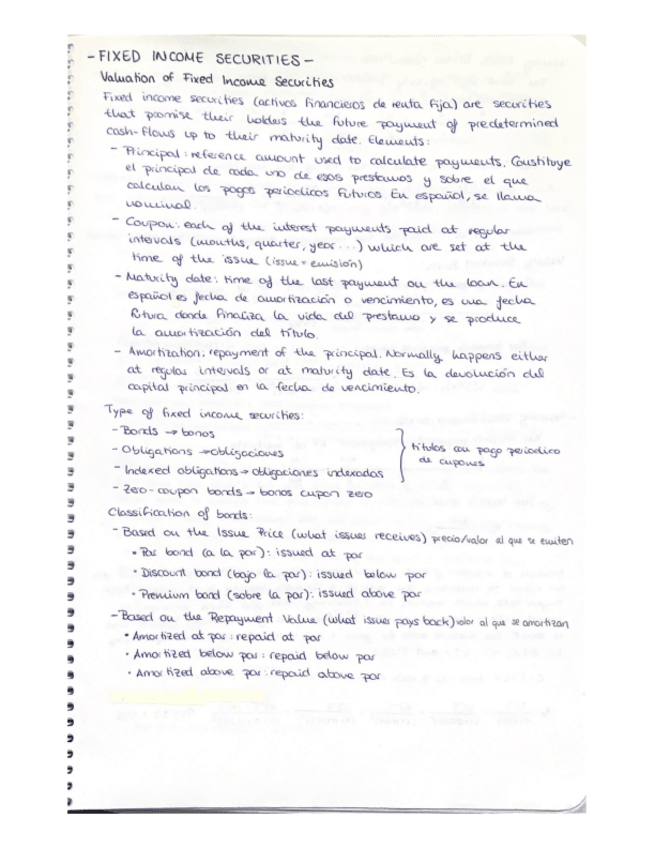 - FIXED INCOME SECURITIES -
Valuation of Fixed Income Securities
Fixed income securities (activos financieros de renta fija) are securities
that promise their holders the future payment of predetermined
cash-flows up to their maturity date. Elements:
- Principal: reference amount used to calculate payments. Constituye
el principal de cada uno de esos prestamos y sobre el que
calculan los pagos periodicos futuros En español, se llama
nominal.
- Coupon: each of the interest payments paid at regular
intervals (months, quarter, year ...) which are set at the
time of the issue (issue = emisión)
- Maturity date: time of the last payment on the loan. En
español es fecha de amortización o vencimiento, es una fecha
futura donde finaliza la vida del prestamo y se produce
la amortización del título.
- Amortization: repayment of the principal. Normally happens either
at regular intervals or at maturity date. Es la devolución del
capital principal en la fecha de vencimiento.
Type of fixed income securities:
- Bonds → bonos
- Obligations → obligaciones
- Indexed obligations → obligaciones indexadas
títulos con pago periodico
de cupones
- Zero-coupon bonds → bonos cupon zero
Classification of bonds:
- Based on the Issue Price (what issues receives) precio/valor al que se emiten
• Par bond (a la par): issued at par
• Discount bond (bajo la par): issued below par
• Premium bond (sobre la par): issued above par
- Based on the Repayment Value (what issues pays back) valor al que se amortizan
• Amortized at par: repaid at par
• Amortized below par: repaid below par
• Amortized above par: repaid above par